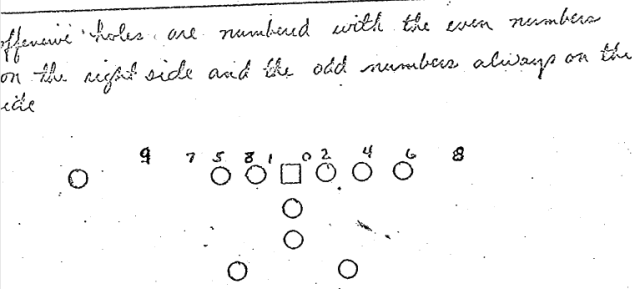 offensive holes are numbered with the even numbers
on the right side and the odd numbers always on the
ide
9 7 5 3 1 0 2 4 6 8